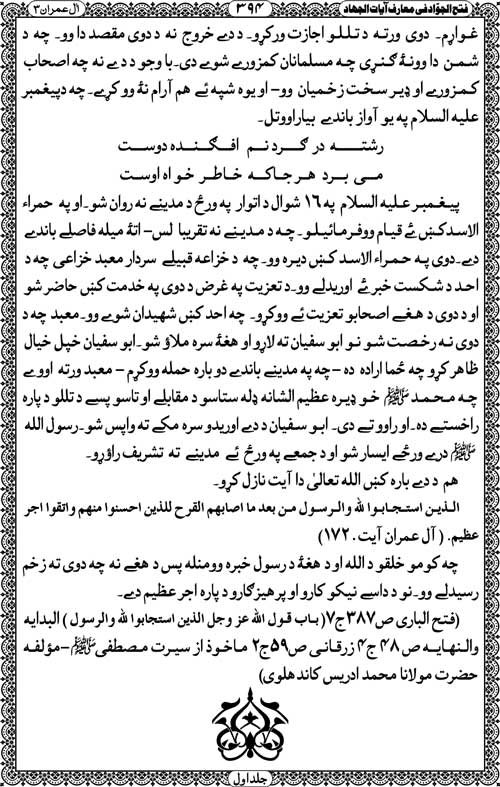 فتح الجوّاد فی معارف آیات الجهاد ۳۹۴ آل عمران ۳
غواړم۔ دوی ورته د تللو اجازت ورکړو۔ د دے خروج نه د دوی مقصد دا وو۔ چه د
شمن دا وونۀ ګنړی چه مسلمانان کمزوری شوے دی۔ با وجود د دے نه چه اصحاب
کمزورے او ډیر سخت زخمیان وو- او یوه شپه ئے هم آرام نۀ وو کړے۔ چه د پیغمبر
علیه السلام په یو آواز باندے بیا راووتل۔
رشتـــه در گـــردنـم افـگـنـده دوسـت
مـی بـرد هـر جـا کـه خـاطـر خـواه اوست
پیغمبر علیه السلام په ۱۶ شوال د اتوار په ورځ د مدینے نه روان شو۔ او په حمراء
الاسد کښ ئے قیام ووفرمائیلو۔ چه د مدینے نه تقریبا لس-اتۀ میله فاصلے باندے
دے۔ دوی په حمراء الاسد کښ دیره وو۔ چه د خزاعه قبیلے سردار معبد خزاعی چه د
احد د شکست خبر ئے اوریدلے وو۔ د تعزیت په غرض د دوی په خدمت کښ حاضر شو
او د دوی د هغے اصحابو تعزیت ئے ووکړو۔ چه احد کښ شهیدان شوے وو۔ معبد چه د
دوی نه رخصت شو نو ابو سفیان ته لاړو او هغۀ سره ملاؤ شو۔ ابو سفیان خپل خیال
ظاهر کړو چه ځما اراده ده -چه په مدینے باندے دوباره حمله ووکړم - معبد ورته اووے
چه محمد ﷺ خو ډیره عظیم الشانه ډله ستاسو د مقابلے او تاسو پسے د تللو د پاره
راخستے ده۔ او راووتے دی۔ ابو سفیان د دے اوریدو سره مکے ته واپس شو۔ رسول الله
ﷺ درے ورځے ایسار شو او د جمعے په ورځ ئے مدینے ته تشریف راؤړو۔
هم د دے باره کښ الله تعالیٰ دا آیت نازل کړو۔
الـذیـن استـجـابـوا لله والـرسول مـن بعد ما اصابهم القرح للذین احسنوا منهم واتقوا اجر
عظیم۔ ( آل عمران آیت۔ ۱۷۲)
چه کومو خلقو د الله او د هغۀ د رسول خبره وومنله پس د هغے نه چه دوی ته زخم
رسیدلے وو۔ نو د داسے نیکو کارو او پرهیزګارو د پاره اجر عظیم دے۔
(فتح الباری ص۳۸۷ ج۷ (باب قول الله عز وجل الذین استجابوا لله والرسول ) البدایه
والنهایه ص ۴۸ ج۴ زرقانی ص۵۹ ج۲ ماخوذ از سیرت مصطفی ﷺ -مؤلفه
حضرت مولانا محمد ادریس کاندهلوی )
جلد اول